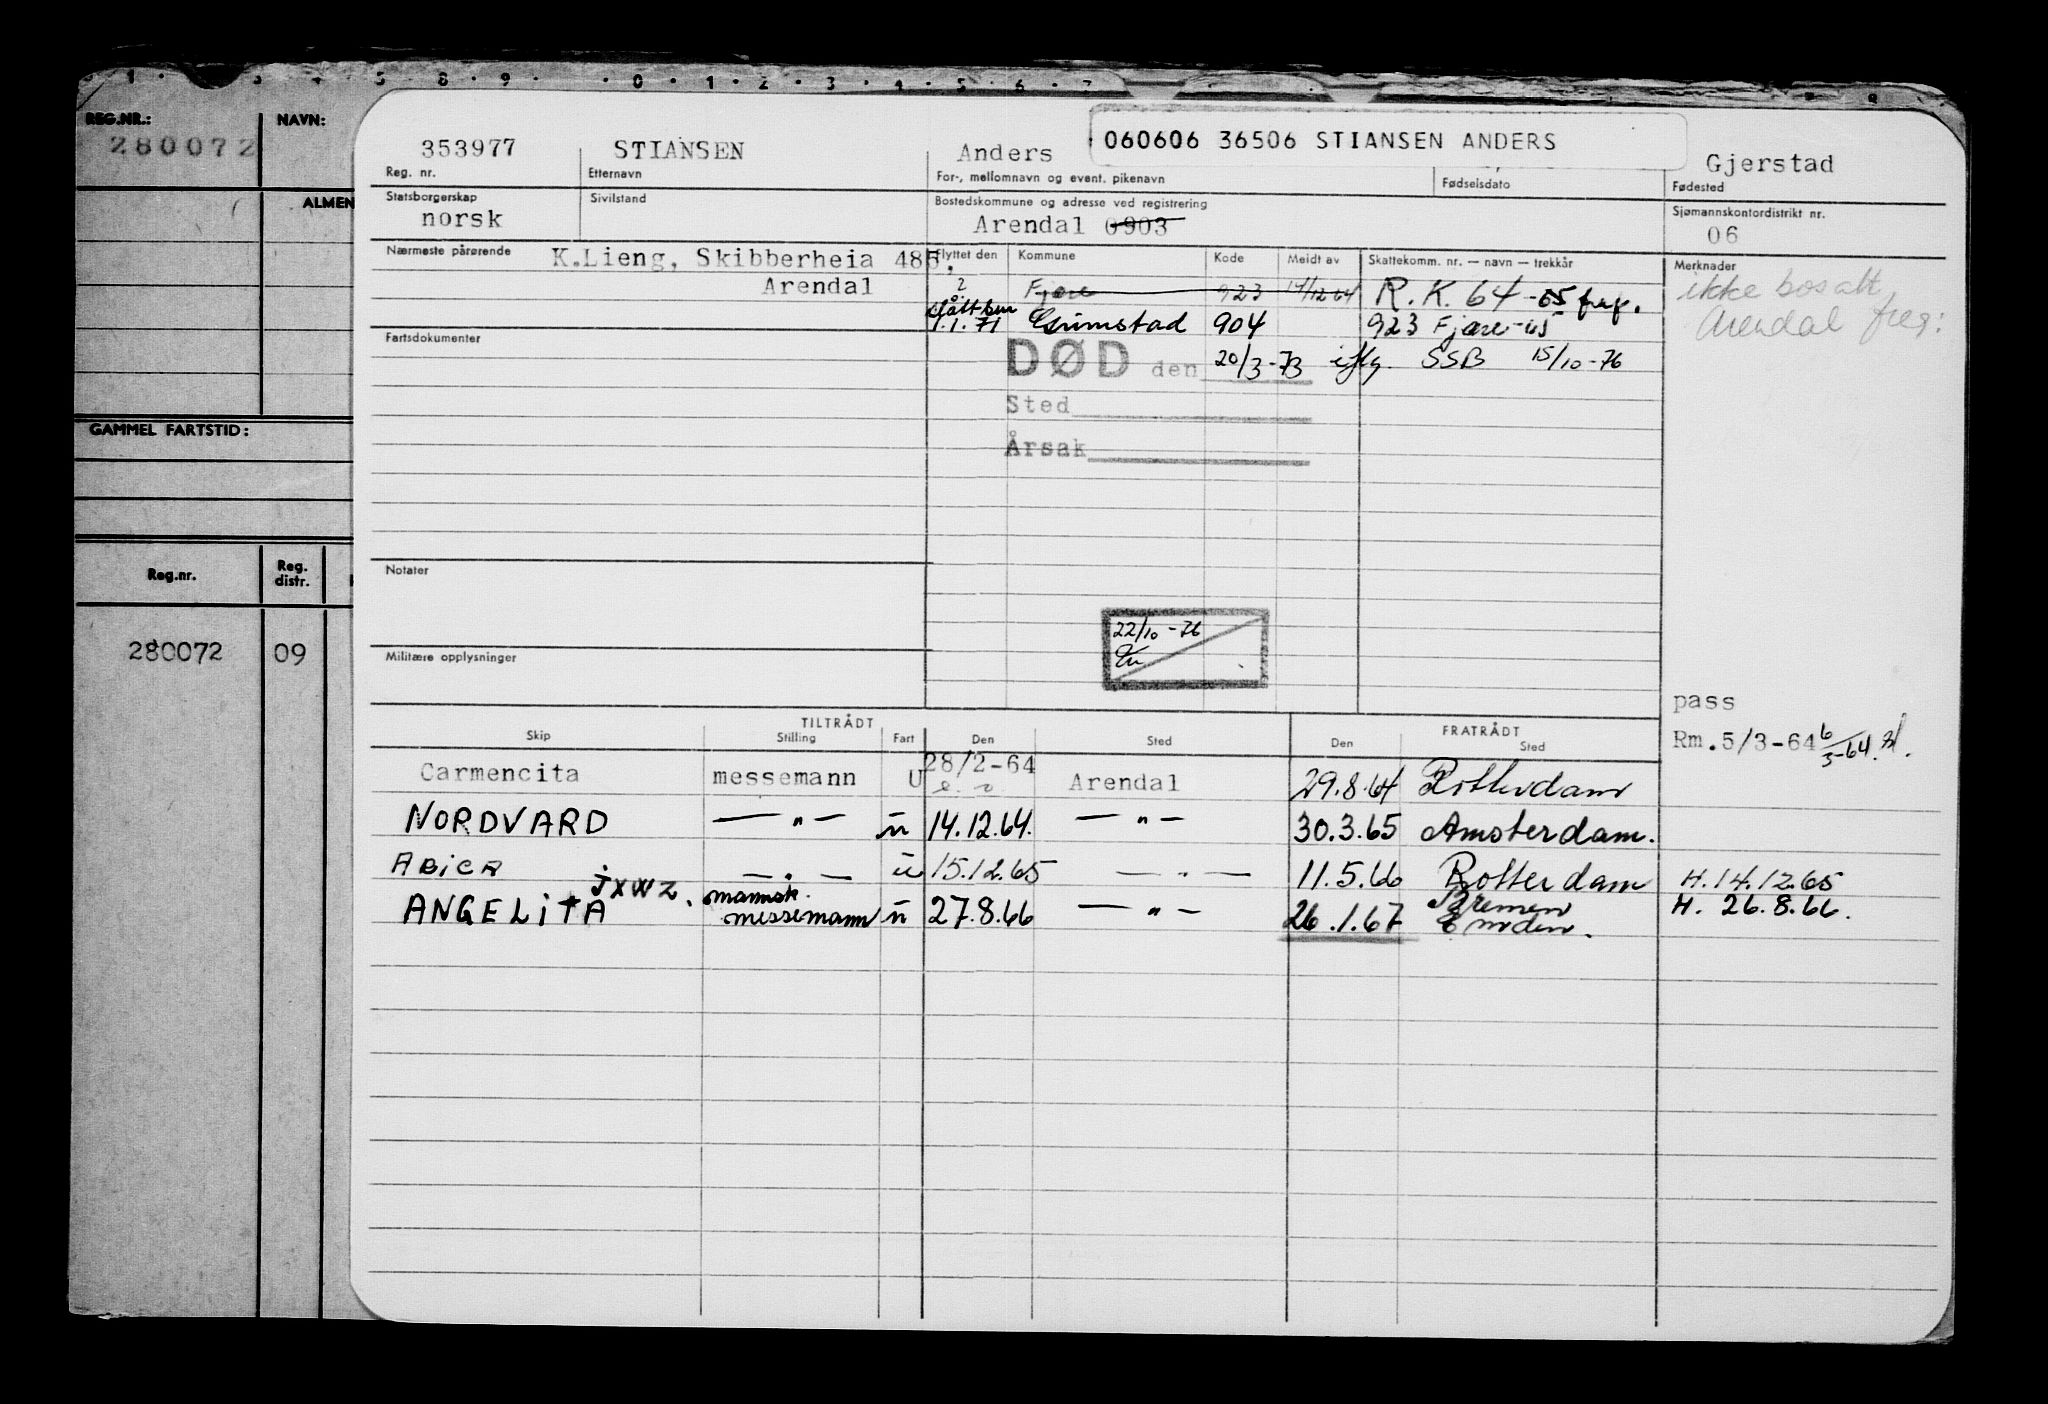 REG.NR.:
280072
NAVN:
ALMEN
GAMMEL FARTSTID:
Reg.nr.
Reg. distr.
280072 09
353977 STIANSEN Anders 060606 36506 STIANSEN ANDERS Gjerstad
Reg. nr. Etternavn For-, mellomnavn og event. pikenavn Fødselsdato Fødested
Statsborgerskap Sivilstand Bostedskommune og adresse ved registrering Sjømannskontordistrikt nr.
norsk Arendal 0903 06
Nærmeste pårørende K.Lieng, Skibberheia 485, Flyttet den Kommune Kode Meldt av Skattekomm. nr. — navn — trekkår Merknader
Arendal ? Fjære 923 14/12 64 R.K. 64-65 freg. ikke bosatt
1.1.71 Grimstad 904 923 Fjære- Arendal freg:
Fartsdokumenter
DØD den 20/3-73 iflg. SSB 15/10-76
Sted
Årsak
Notater
22/10-76
Militære opplysninger
pass
TILTRÅDT FRATRÅDT
Skip Stilling Fart Den Sted Den Sted
Rm.5/3-64 6/3-64.
Carmencita messemann U 28/2-64 Arendal 29.8.64 Rotterdam
NORDVARD — " — u 14.12.64. — " — 30.3.65 Amsterdam.
ABICA — " — u 15.12.65 — " — 11.5.66 Rotterdam H.14.12.65
JXWZ. mannsk. Bremen
ANGELITA messemann u 27.8.66 — " — 26.1.67 Emden. H. 26.8.66.